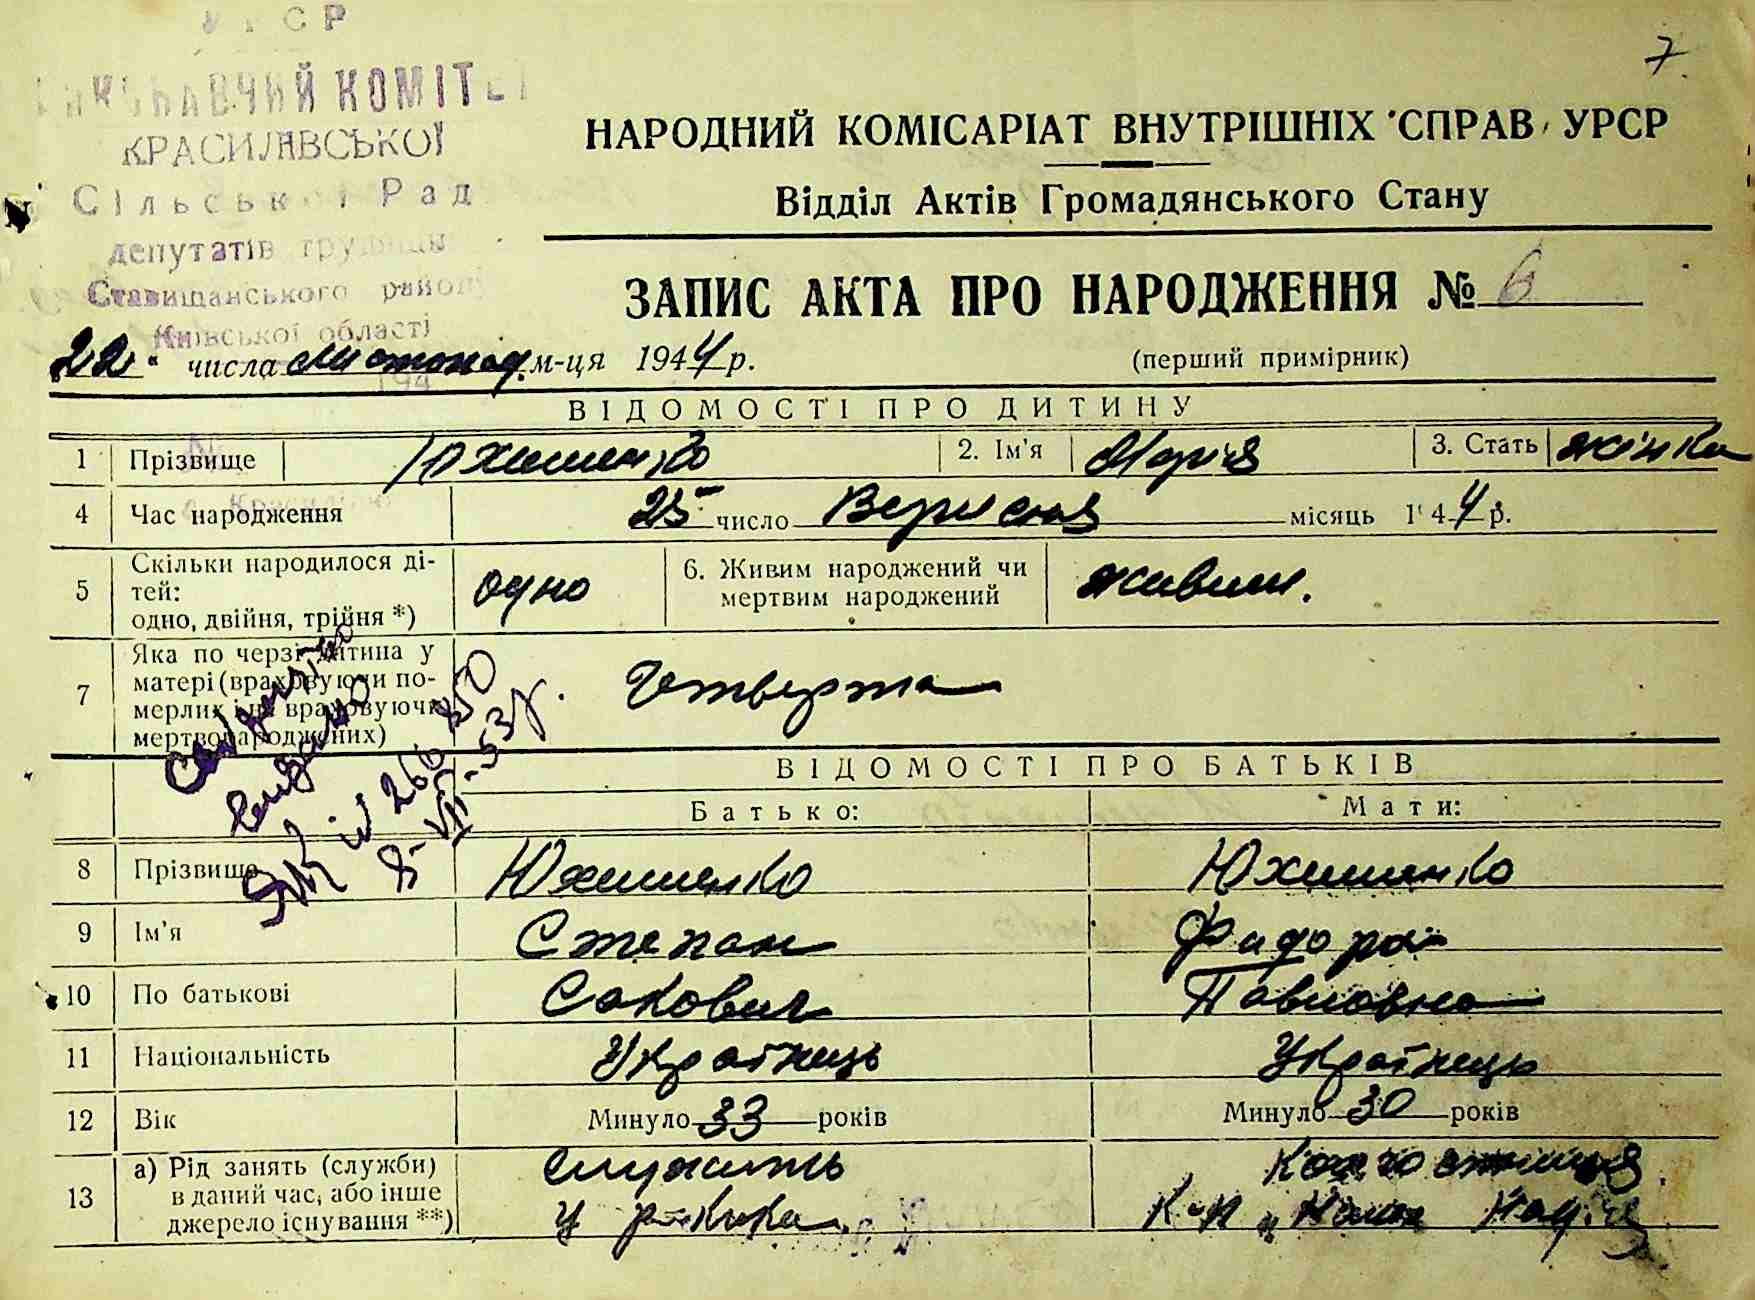 УРСР
7.
ВИКОНАВЧИЙ КОМІТЕТ
КРАСИЛІВСЬКОЇ
Сільської Рад
депутатів трудящих
Ставищанського району
Київської області
194
НАРОДНИЙ КОМІСАРІАТ ВНУТРІШНІХ СПРАВ УРСР
Відділ Актів Громадянського Стану
ЗАПИС АКТА ПРО НАРОДЖЕННЯ № 6
22 " числа листопад. м-ця 1944 р.
(перший примірник)
ВІДОМОСТІ ПРО ДИТИНУ
1 Прізвище Юхименко 2. Ім'я Марія 3. Стать жінка
4 Час народження 25 число Вересня місяць 1944 р.
5 Скільки народилося ді-
тей:
одно, двійня, трійня *) одно 6. Живим народжений чи
мертвим народжений живим.
7 Яка по черзі дитина у
матері (враховуючи по-
мерлих і не враховуючи
мертвонароджених) Четверта
ВІДОМОСТІ ПРО БАТЬКІВ
Батько: Мати:
8 Прізвище Юхименко Юхименко
9 Ім'я Степан Фидора
10 По батькові Сакович Павловна
11 Національність Українець Українець
12 Вік Минуло 33 років Минуло 30 років
13 а) Рід занять (служби)
в даний час, або інше
джерело існування **) служить
у